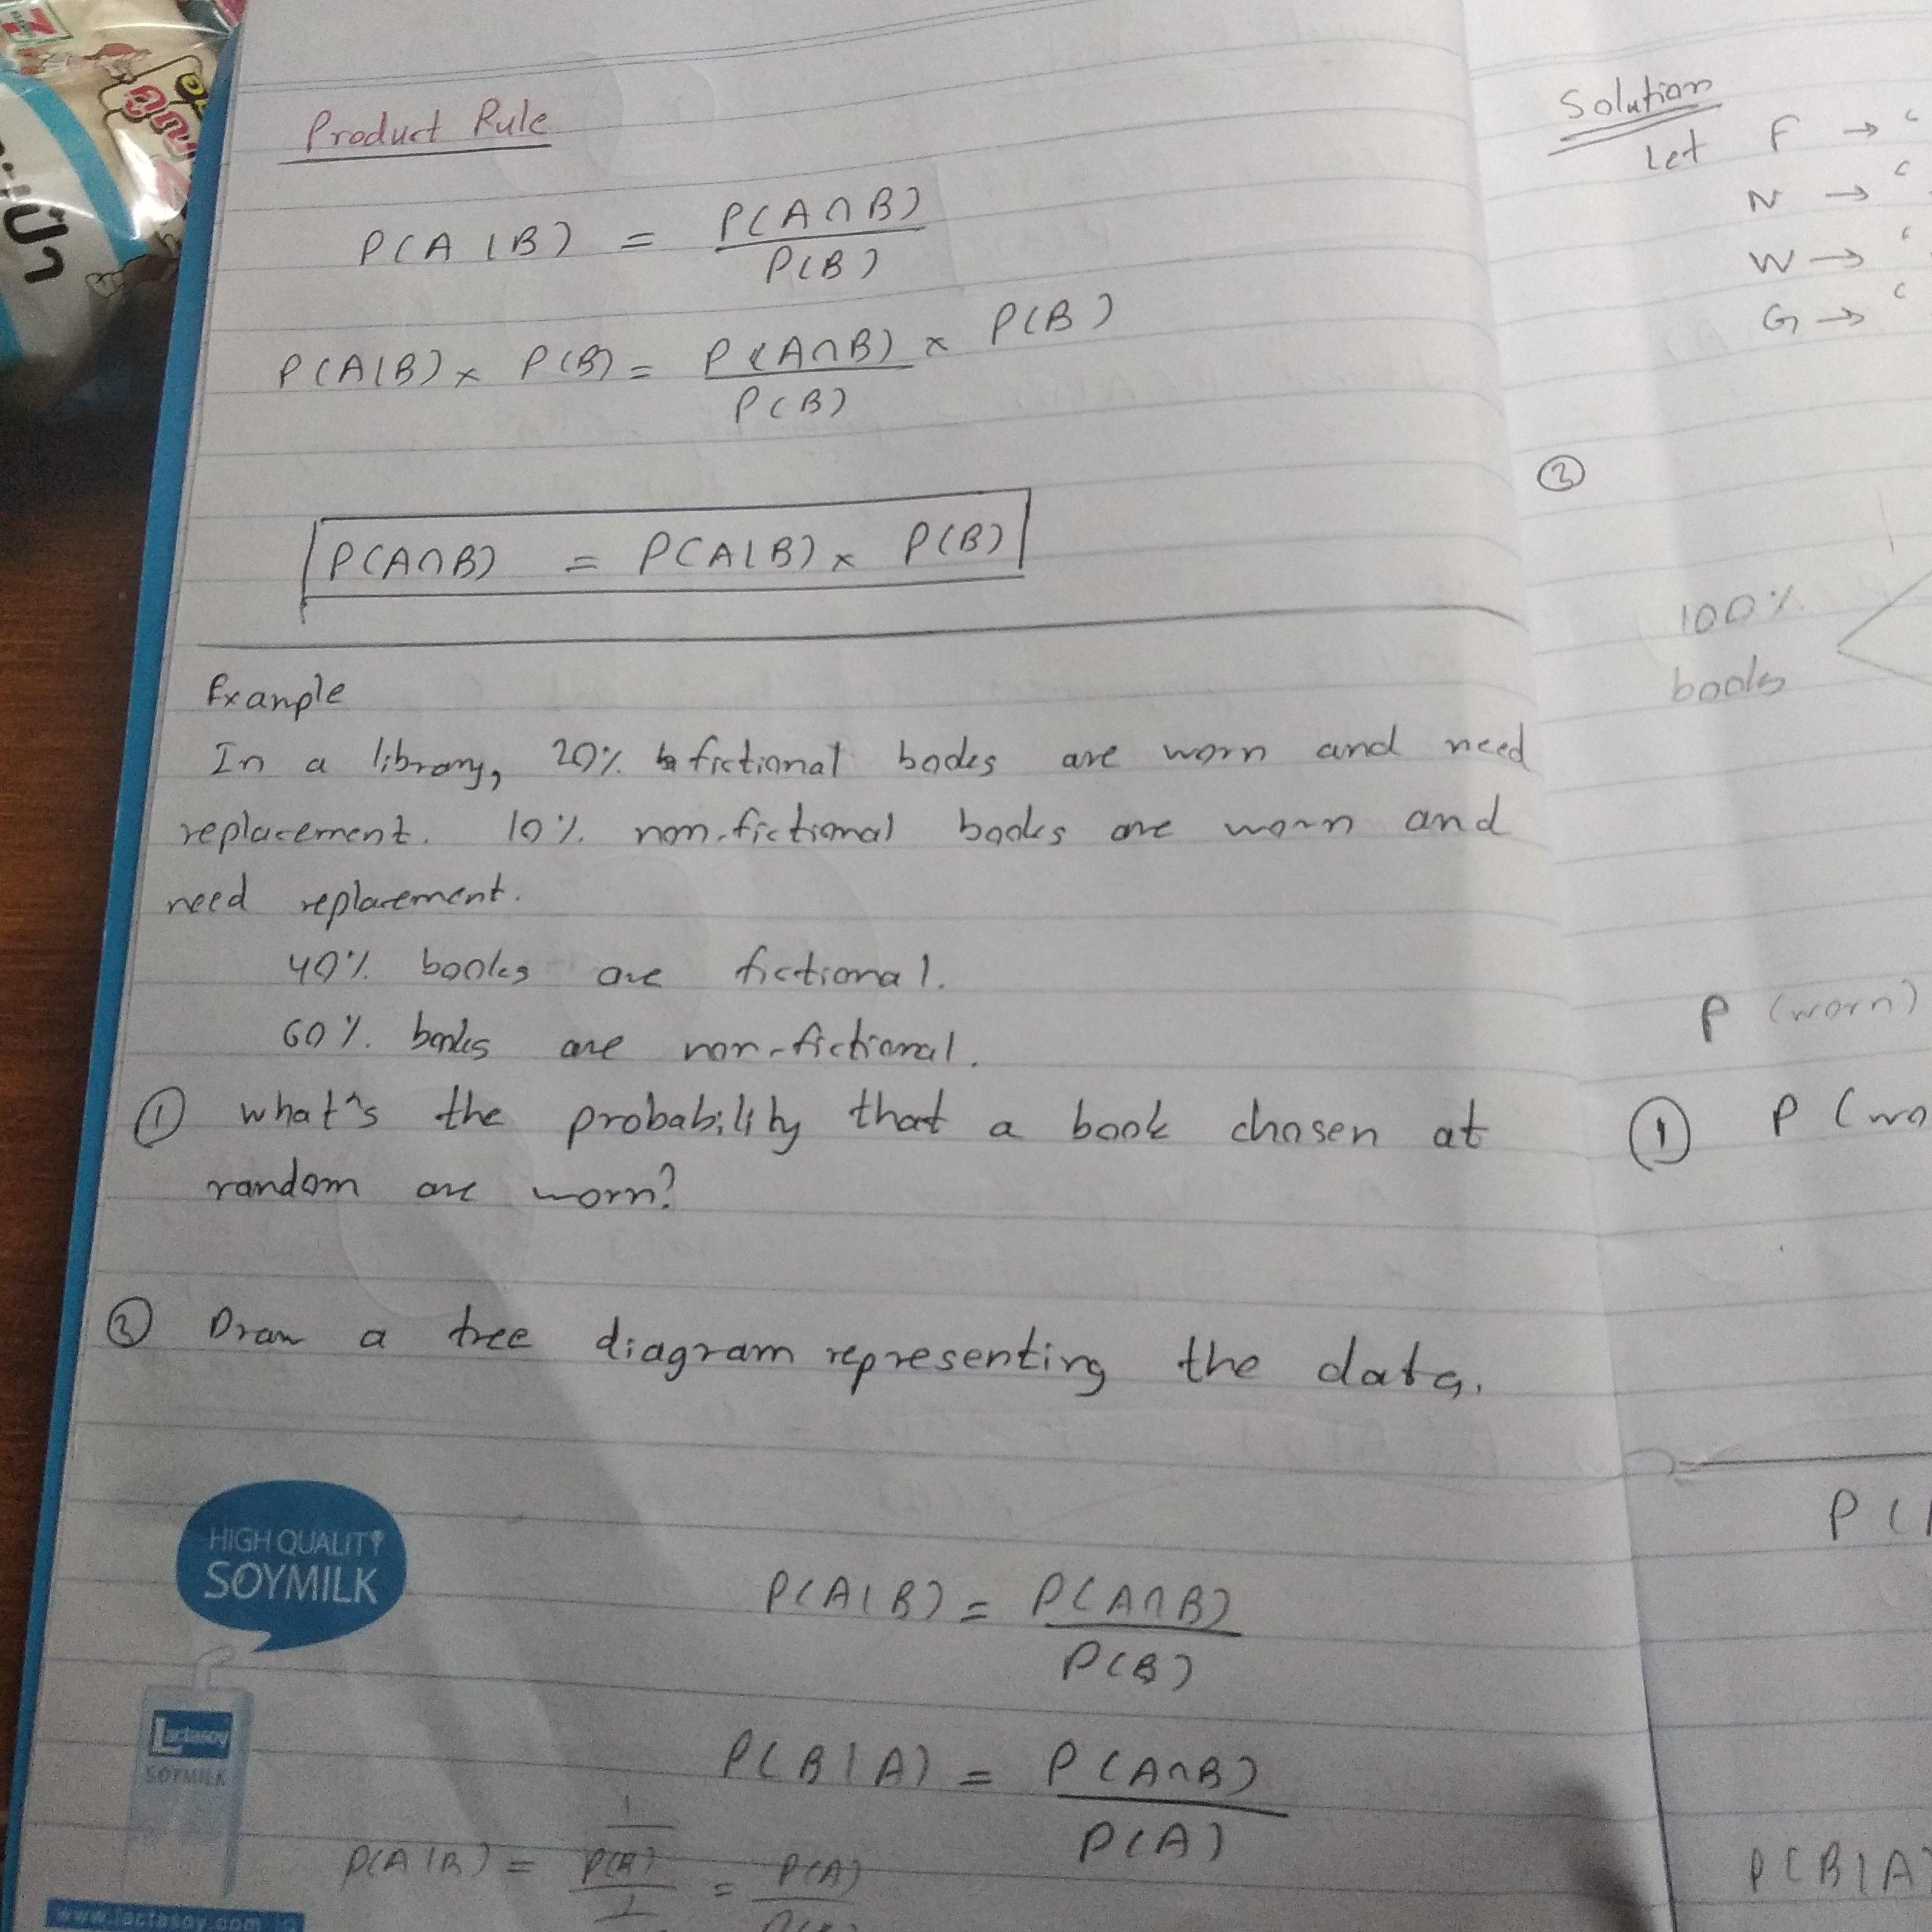 Product Rule
P(A|B) = P(A∩B) / P(B)
P(A|B) × P(B) = P(A∩B) / P(B) × P(B)
P(A∩B) = P(A|B) × P(B)
Example
In a library, 20% fictional books are worn and need
replacement. 10% non-fictional books are worn and
need replacement.
40% books are fictional.
60% books are non-fictional.
① what's the probability that a book chosen at
random are worn?
② Draw a tree diagram representing the data.
P(A|B) = P(A∩B) / P(B)
P(B|A) = P(A∩B) / P(A)
HIGH QUALITY
SOYMILK
Lactasoy
SOYMILK
Solution
Let F →
N →
W →
G →
②
100%
books
P (worn)
① P (wo
P(
P(B|A)